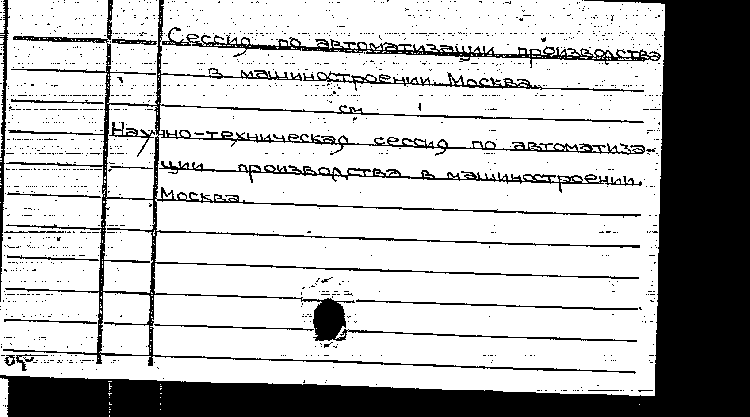 Сессия по автоматизации производства
в машиностроении. Москва.
см
Научно-техническая сессия по автоматиза-
ции производства в машиностроении.
Москва.